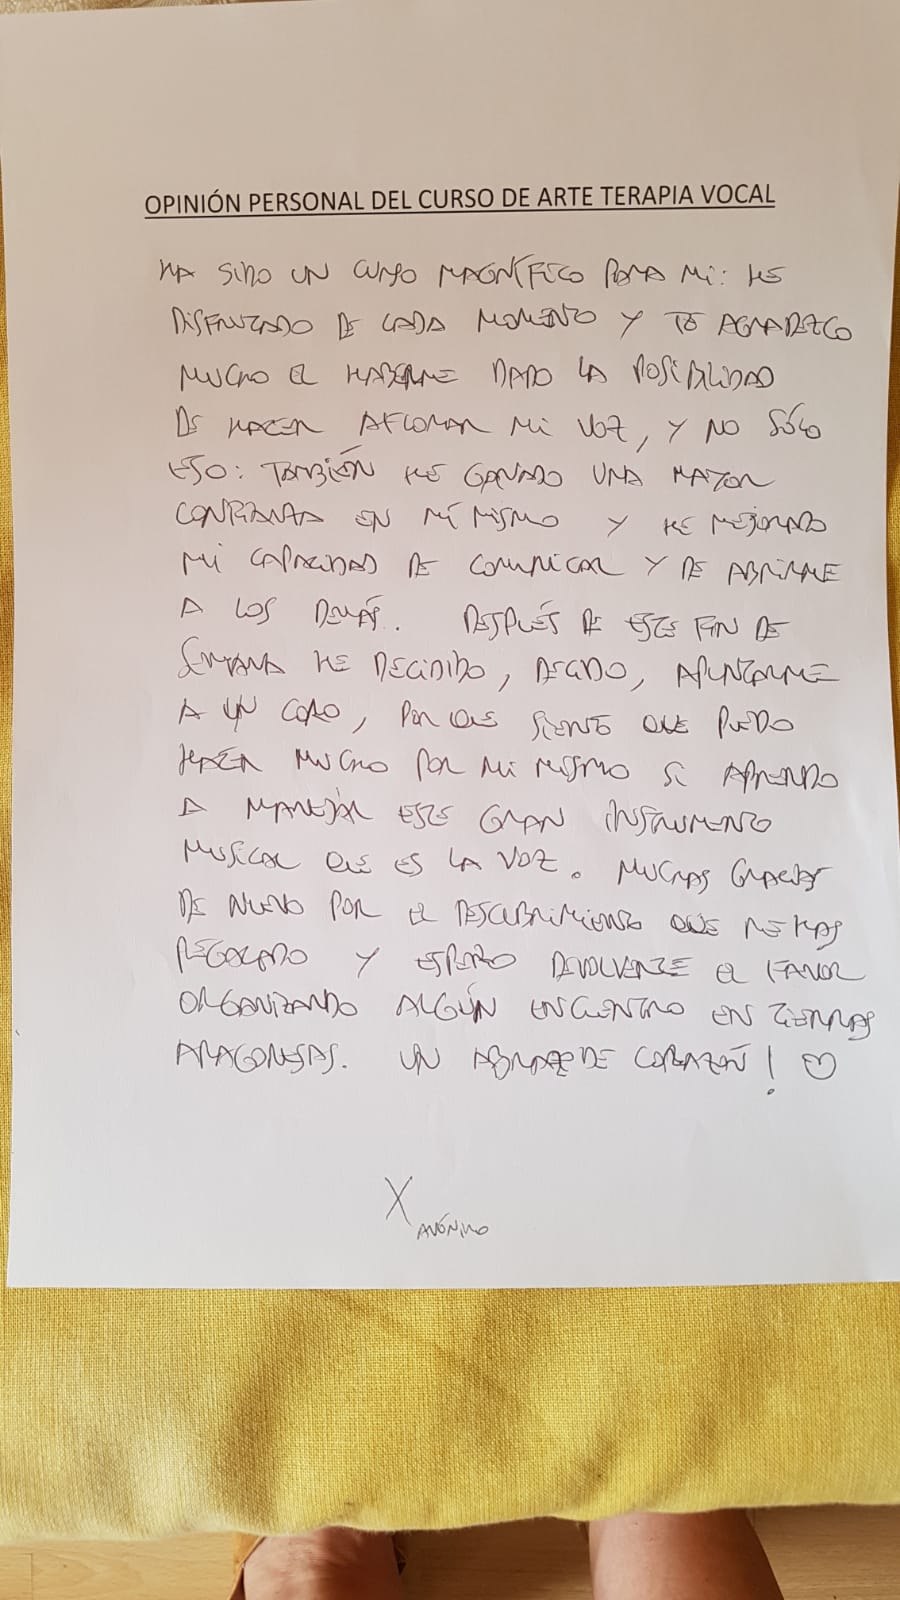 OPINIÓN PERSONAL DEL CURSO DE ARTE TERAPIA VOCAL
HA SIDO UN CURSO MAGNÍFICO PARA MI: HE
DISFRUTADO DE CADA MOMENTO Y TE AGRADEZCO
MUCHO EL HABERME DADO LA POSIBILIDAD
DE HACER AFLORAR MI VOZ, Y NO SÓLO
ESO: TAMBIÉN HE GANADO UNA MAYOR
CONFIANZA EN MÍ MISMO Y HE MEJORADO
MI CAPACIDAD DE COMUNICAR Y DE ABRIRME
A LOS DEMÁS. DESPUÉS DE ESTE FIN DE
SEMANA HE DECIDIDO, DECIDO, APUNTARME
A UN CORO, POR QUE SIENTO QUE PUEDO
HACER MUCHO POR MI MISMO SI APRENDO
A MANEJAR ESTE GRAN INSTRUMENTO
MUSICAL QUE ES LA VOZ. MUCHAS GRACIAS
DE NUEVO POR EL DESCUBRIMIENTO QUE ME HAS
REGALADO Y ESPERO DEVOLVERTE EL FAVOR
ORGANIZANDO ALGÚN ENCUENTRO EN TIERRAS
ARAGONESAS. UN ABRAZO DE CORAZÓN! ♡
X
ANÓNIMO